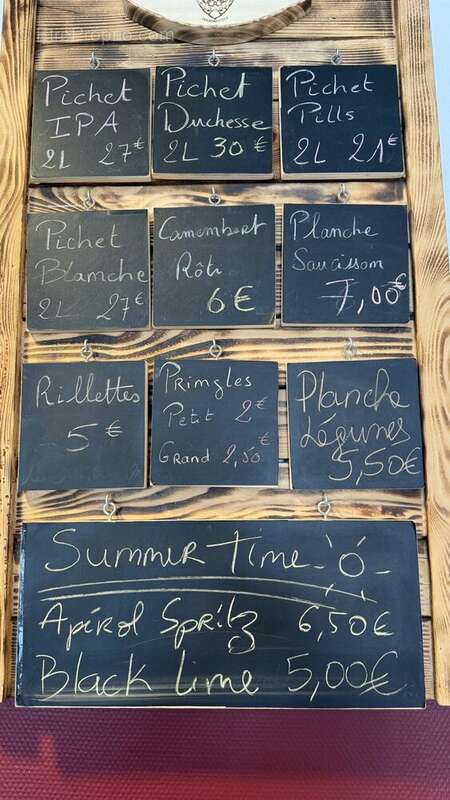 Pichet
IPA
2L 27€
Pichet
Duchesse
2L 30€
Pichet
Pills
2L 21€
Pichet
Blanche
2L 27€
Camembert
Rôti
6€
Planche
Saucisson
7,00€
Rillettes
5€
Pringles
Petit 2€
Grand 2,50€
Planche
Légumes
5,50€
Summer Time
Apérol Spritz 6,50€
Black Lime 5,00€